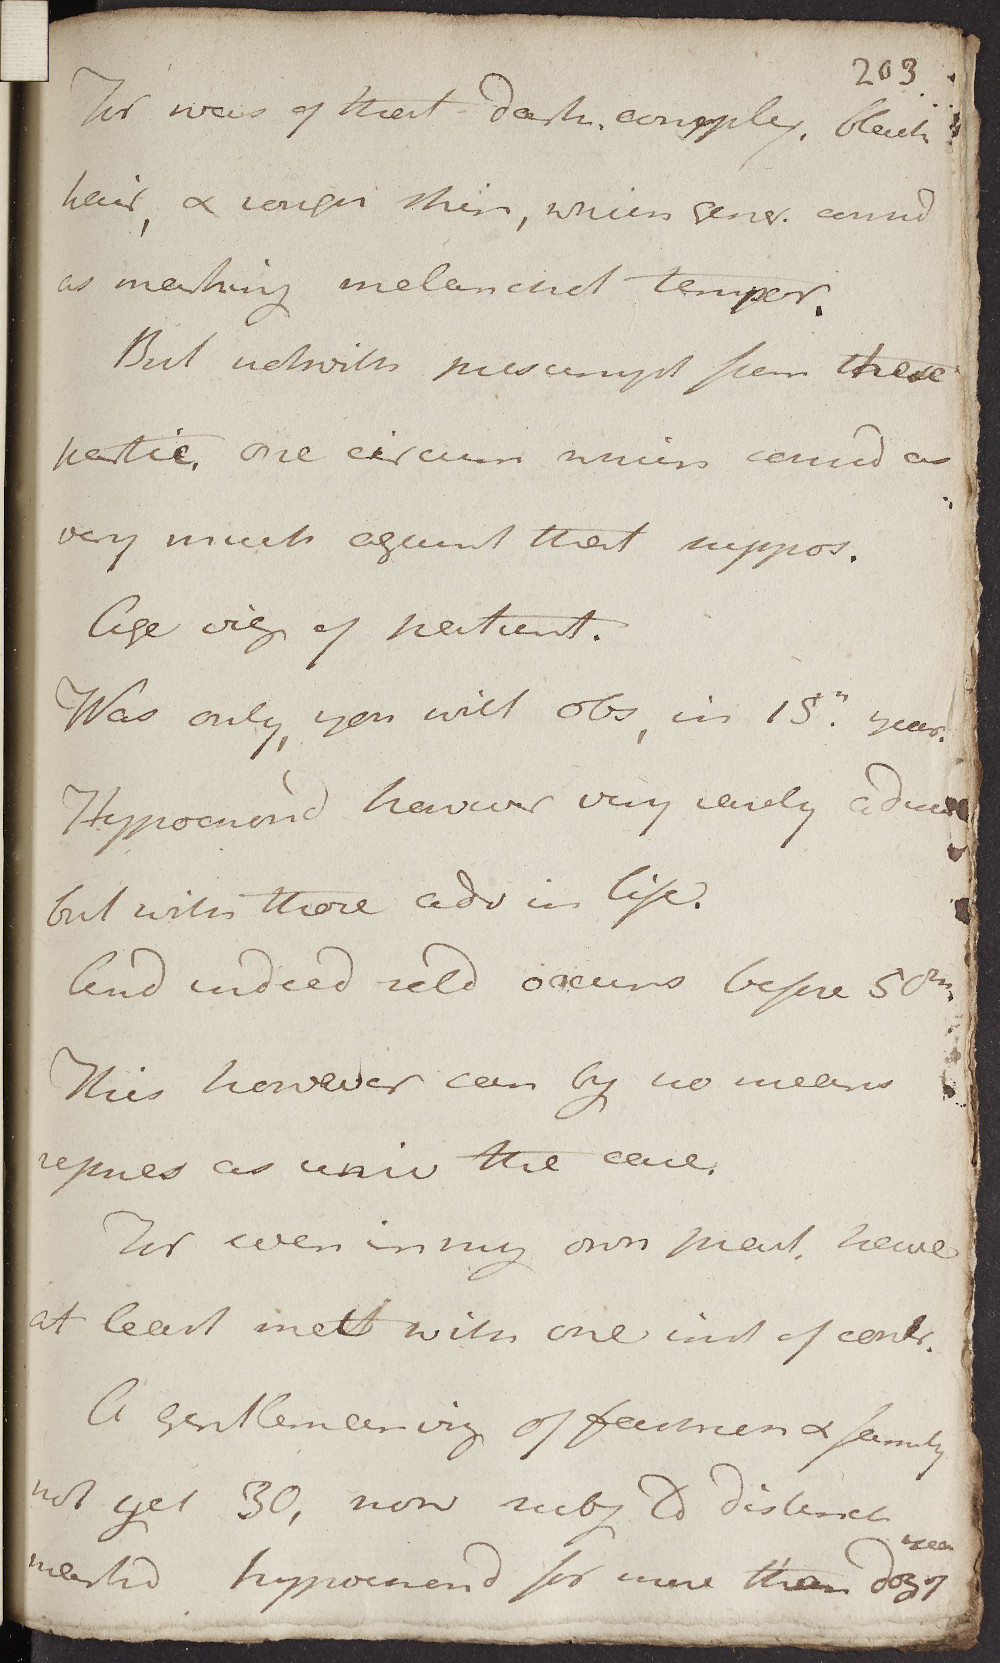 203
For was of that dark. complex. black
hair, & rough skin, which gener. consid
as marking melanchol temper.
But notwith presumpt from these
partic. one circum which consid as
very much against that suppos.
Age viz of patient.
Was only, you will obs, in 15th. year.
Hypochond however very rarely
but with those adv in life.
And indeed seld occurs before 30th
This however can by no means
repres as univ the case.
For even in my own pract. have
at least mett with one inst of contr.
A gentleman viz of fashion & family
not yet 30, now subj to distinct
marked hypochond for more than doz of
year